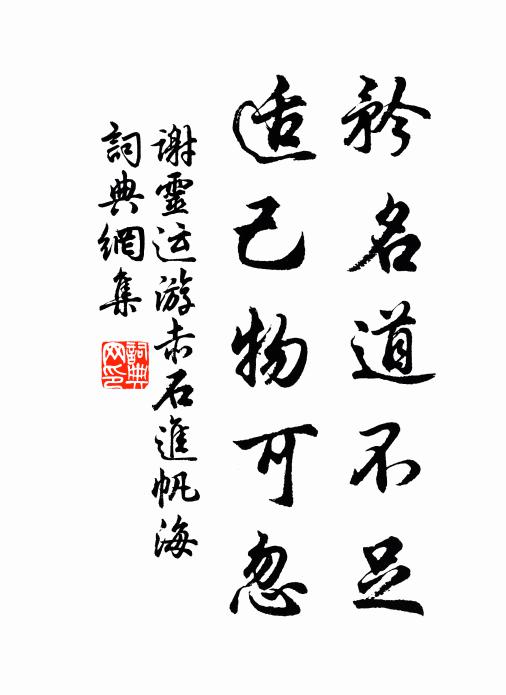 矜名道不足
适己物可忽
谢靈运游赤石進帆海
詞典網集
詞典
网印